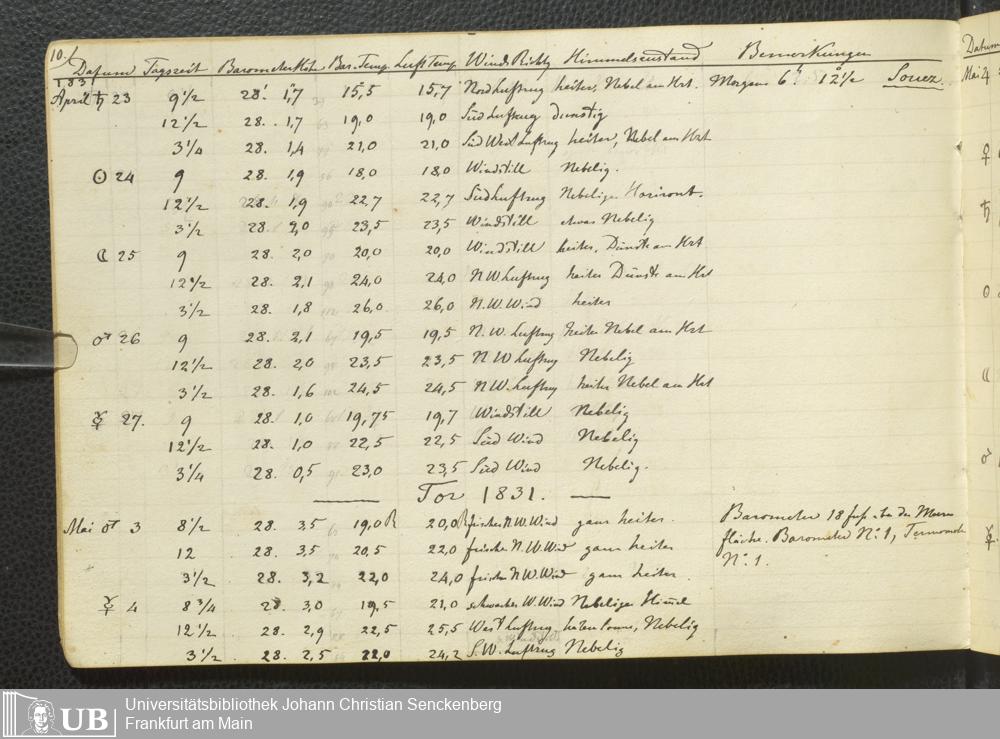 10./.
Datum Tagszeit Barometer Höhe Bar. Temp. Luft Temp. Winds Richtg Himmelszustand Bemerkungen
1831
April ♄ 23 9½ 28.' 1,'''7 15,5 15,7 Nordluftzug heiter, Nebel am Hrt. Morgens 6h 12°½ Souez.
12½ 28. . 1,7 19,0 19,0 Südluftzug dunstig
3¼ 28. 1,4 21,0 21,0 Süd West Luftzug heiter, Nebel am Hrt
☉ 24 9 28. 1,9 18,0 18,0 Windstill Nebelig.
12½ 28. 1,9 22,7 22,7 Südluftzug Nebeliger Horizont.
3½ 28. 2,0 23,5 23,5 Windstill etwas Nebelig
☾ 25 9 28. 2,0 20,0 20,0 Windstill heiter. Dünste am Hrt
12½ 28. 2,1 24,0 24,0 N.W. Luftzug heiter Dünste am Hrt
3½ 28. 1,8 26,0 26,0 N.W. Wind heiter
♂ 26 9 28. 2,1 19,5 19,5 N.W. Luftzug heiter Nebel am Hrt
12½ 28. 2,0 23,5 23,5 N W Luftzug Nebelig
3½ 28. 1,6 24,5 24,5 N W. Luftzug heiter Nebel am Hrt
☿ 27. 9 28. 1,0 19,75 19,7 Windstill Nebelig
12½ 28. 1,0 22,5 22,5 Süd Wind Nebelig
3¼ 28. 0,5 23,0 23,5 Süd Wind Nebelig.
Tor 1831.
Mai ♂ 3 8½ 28. 3,5 19,0 R 20,0 R frischer N.W. Wind ganz heiter. Barometer 18 fuss über der Meeres
12 28. 3,5 20,5 22,0 frischer N.W. Wind ganz heiter fläche. Barometer No. 1, Termometer
3½ 28. 3,2 22,0 24,0 frischer N W. Wind ganz heiter. No. 1.
☿ 4 8¾ 28. 3,0 19,5 21,0 schwacher W. Wind Nebeliger Himel
12½ 28. 2,9 22,5 25,5 West Luftzug Sonne, Nebelig
3½ 28. 2,5 22,0 24,2 S.W. Luftzug Nebelig
Datum
Mai ♃
♀
♄
☉
☾
♂
☿.
UB
Universitätsbibliothek Johann Christian Senckenberg
Frankfurt am Main